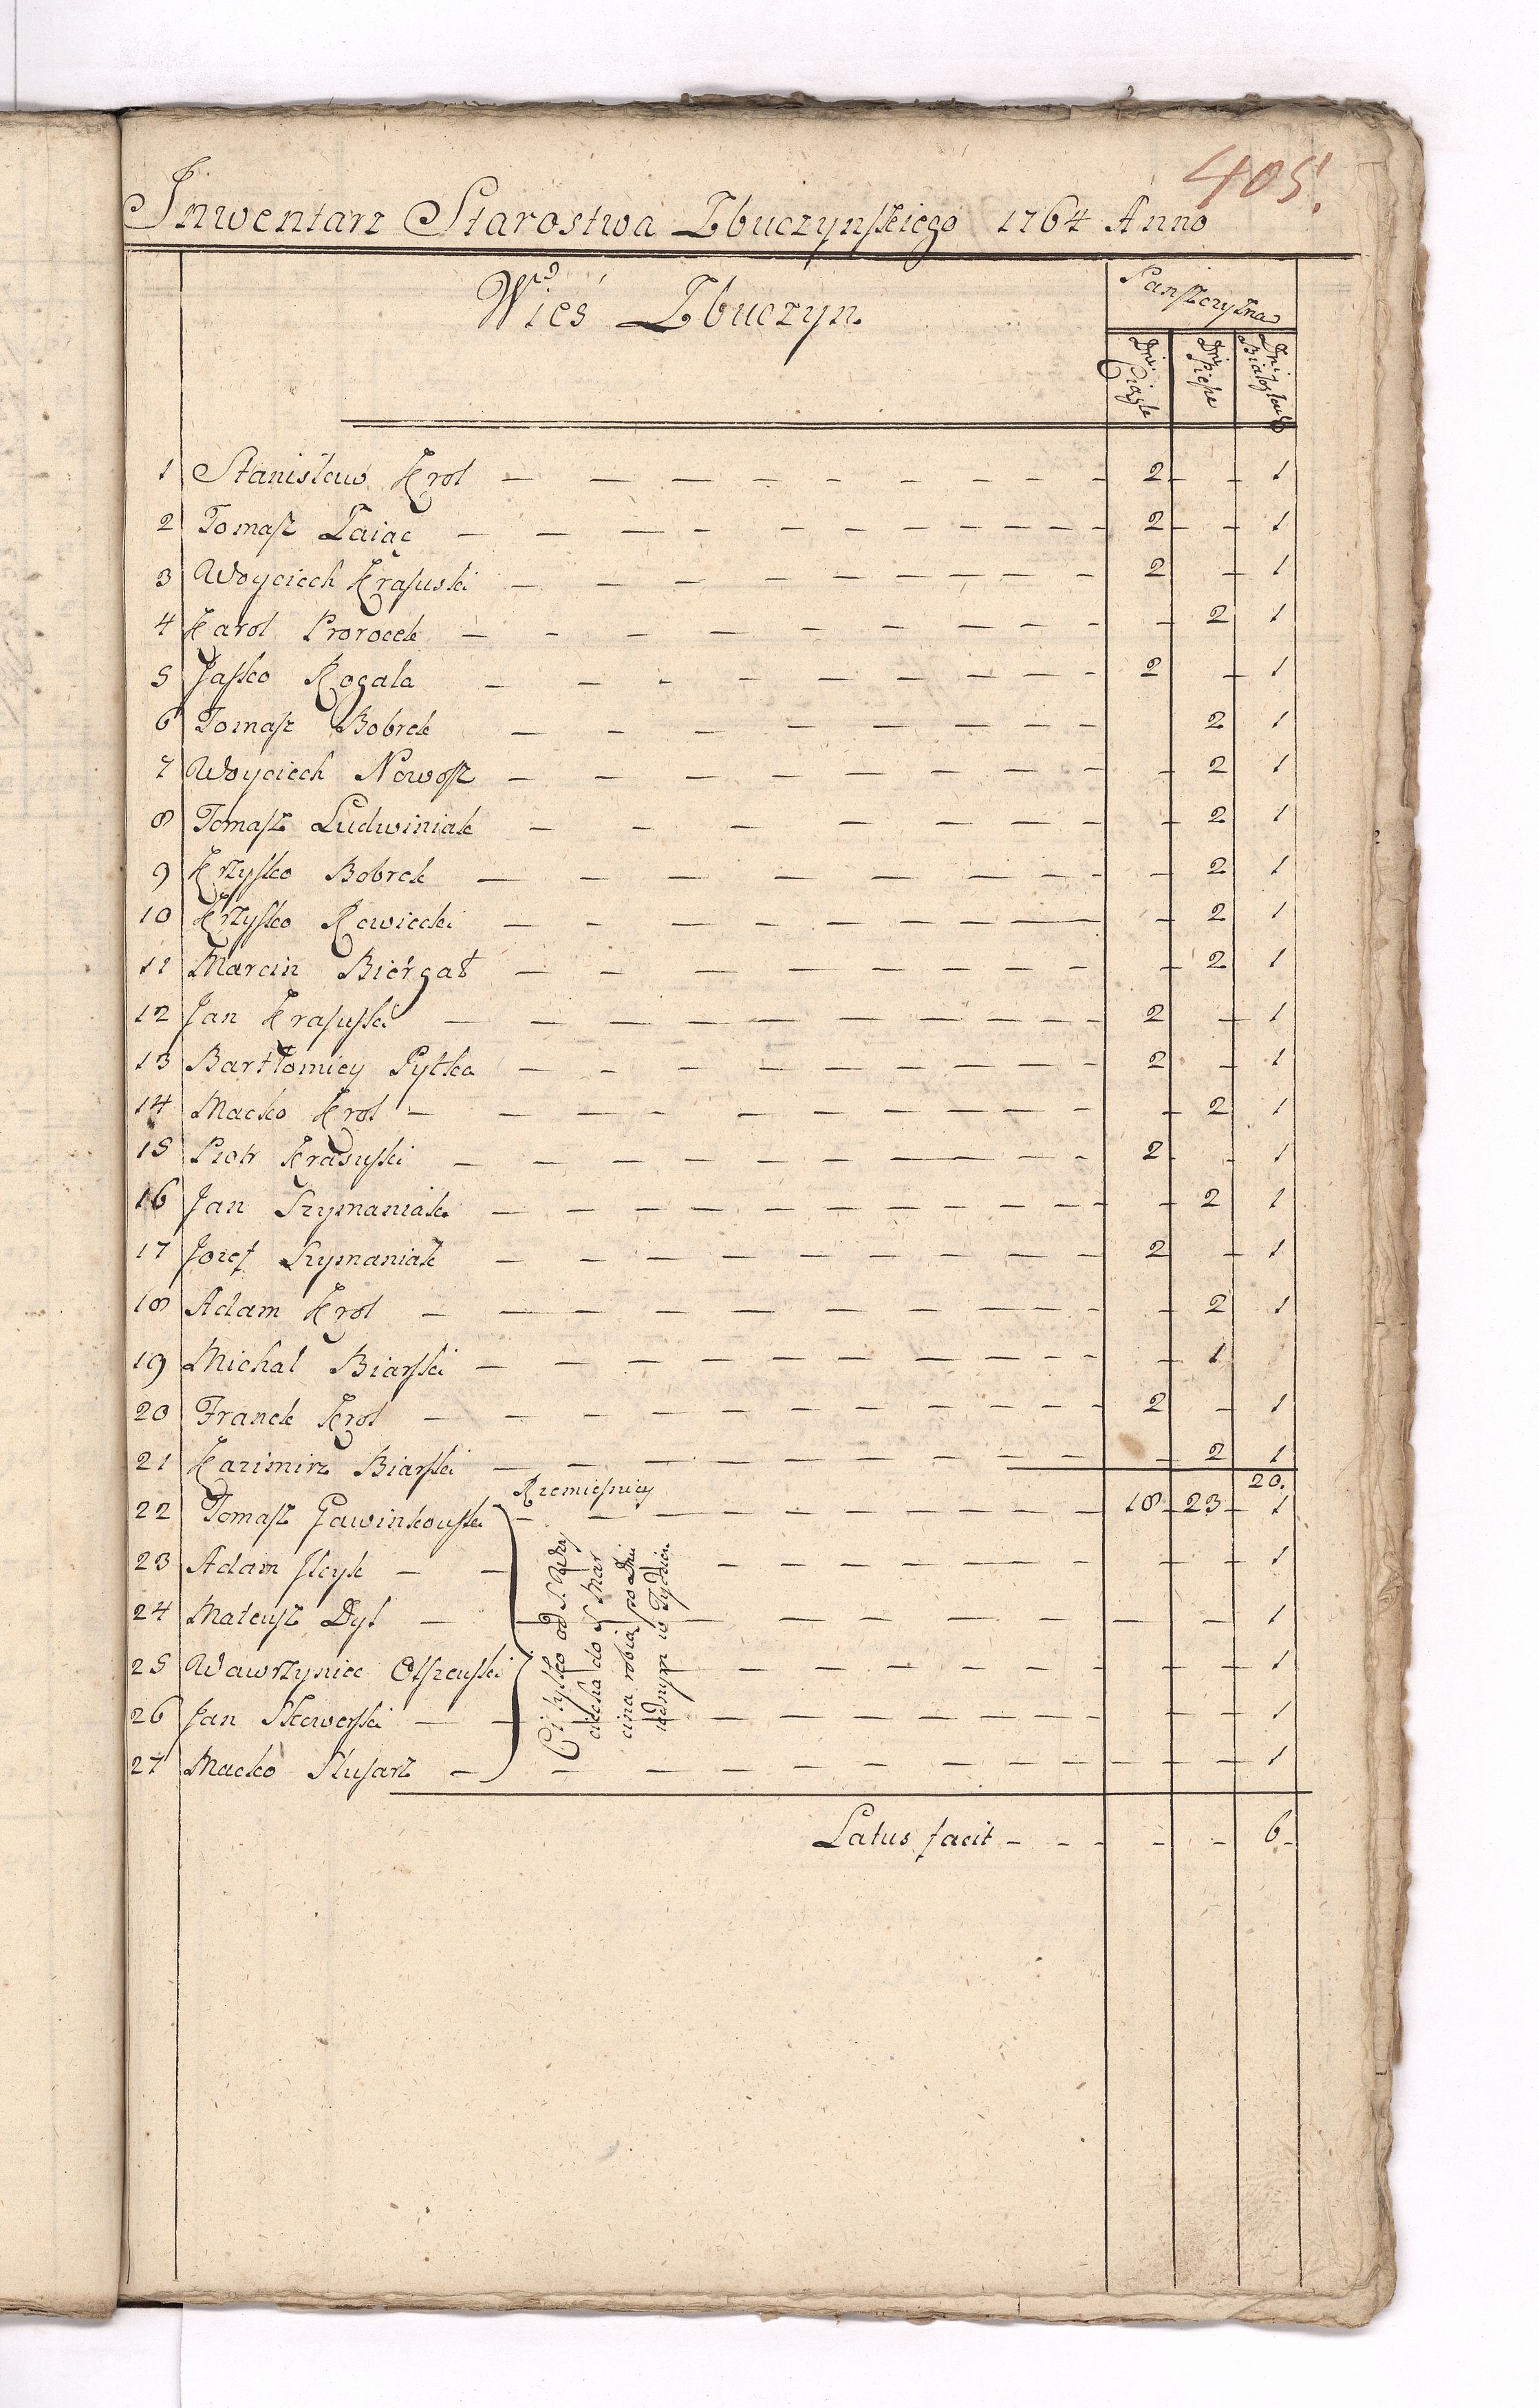 405.
Inwentarz Starostwa Zbuczynskiego 1764 Anno
Wieś Zbuczyn
Panszczyzna
Dni Ciągłe
Dni Piesze
Dni
1 Stanisław Krol 2 1
2 Tomasz Zaiąc 2 1
3 Woyciech Krasuski 2 1
4 Karol Prorocek 2 1
5 Jasko Rogala 2 1
6 Tomasz Bobrek 2 1
7 Woyciech Nowosz 2 1
8 Tomasz Ludwiniak 2 1
9 Krzysko Bobrek 2 1
10 Krzysko Rewiecki 2 1
11 Marcin Biérgat 2 1
12 Jan Krasuski 2 1
13 Bartłomiey Pytka 2 1
14 Macko Krol 2 1
15 Piotr Krasuski 2 1
16 Jan Szymaniak 2 1
17 Jozef Szymaniak 2 1
18 Adam Krol 2 1
19 Michał Biarski 1
20 Franek Krol 2 1
21 Kazimirz Biarski 2 1
18 23 20.
Rzemiesnicy
22 Tomasz Gawinkowski 1
23 Adam 1
24 Mateusz Dys 1
25 Wawrzyniec Olszeuski 1
26 Jan Skwerski 1
27 Macko Slusarz 1
Ci tylko od S. Woy
ciecha do S Mar
cina robią po Dniu
iednym w Tydzień
Latus facit 6